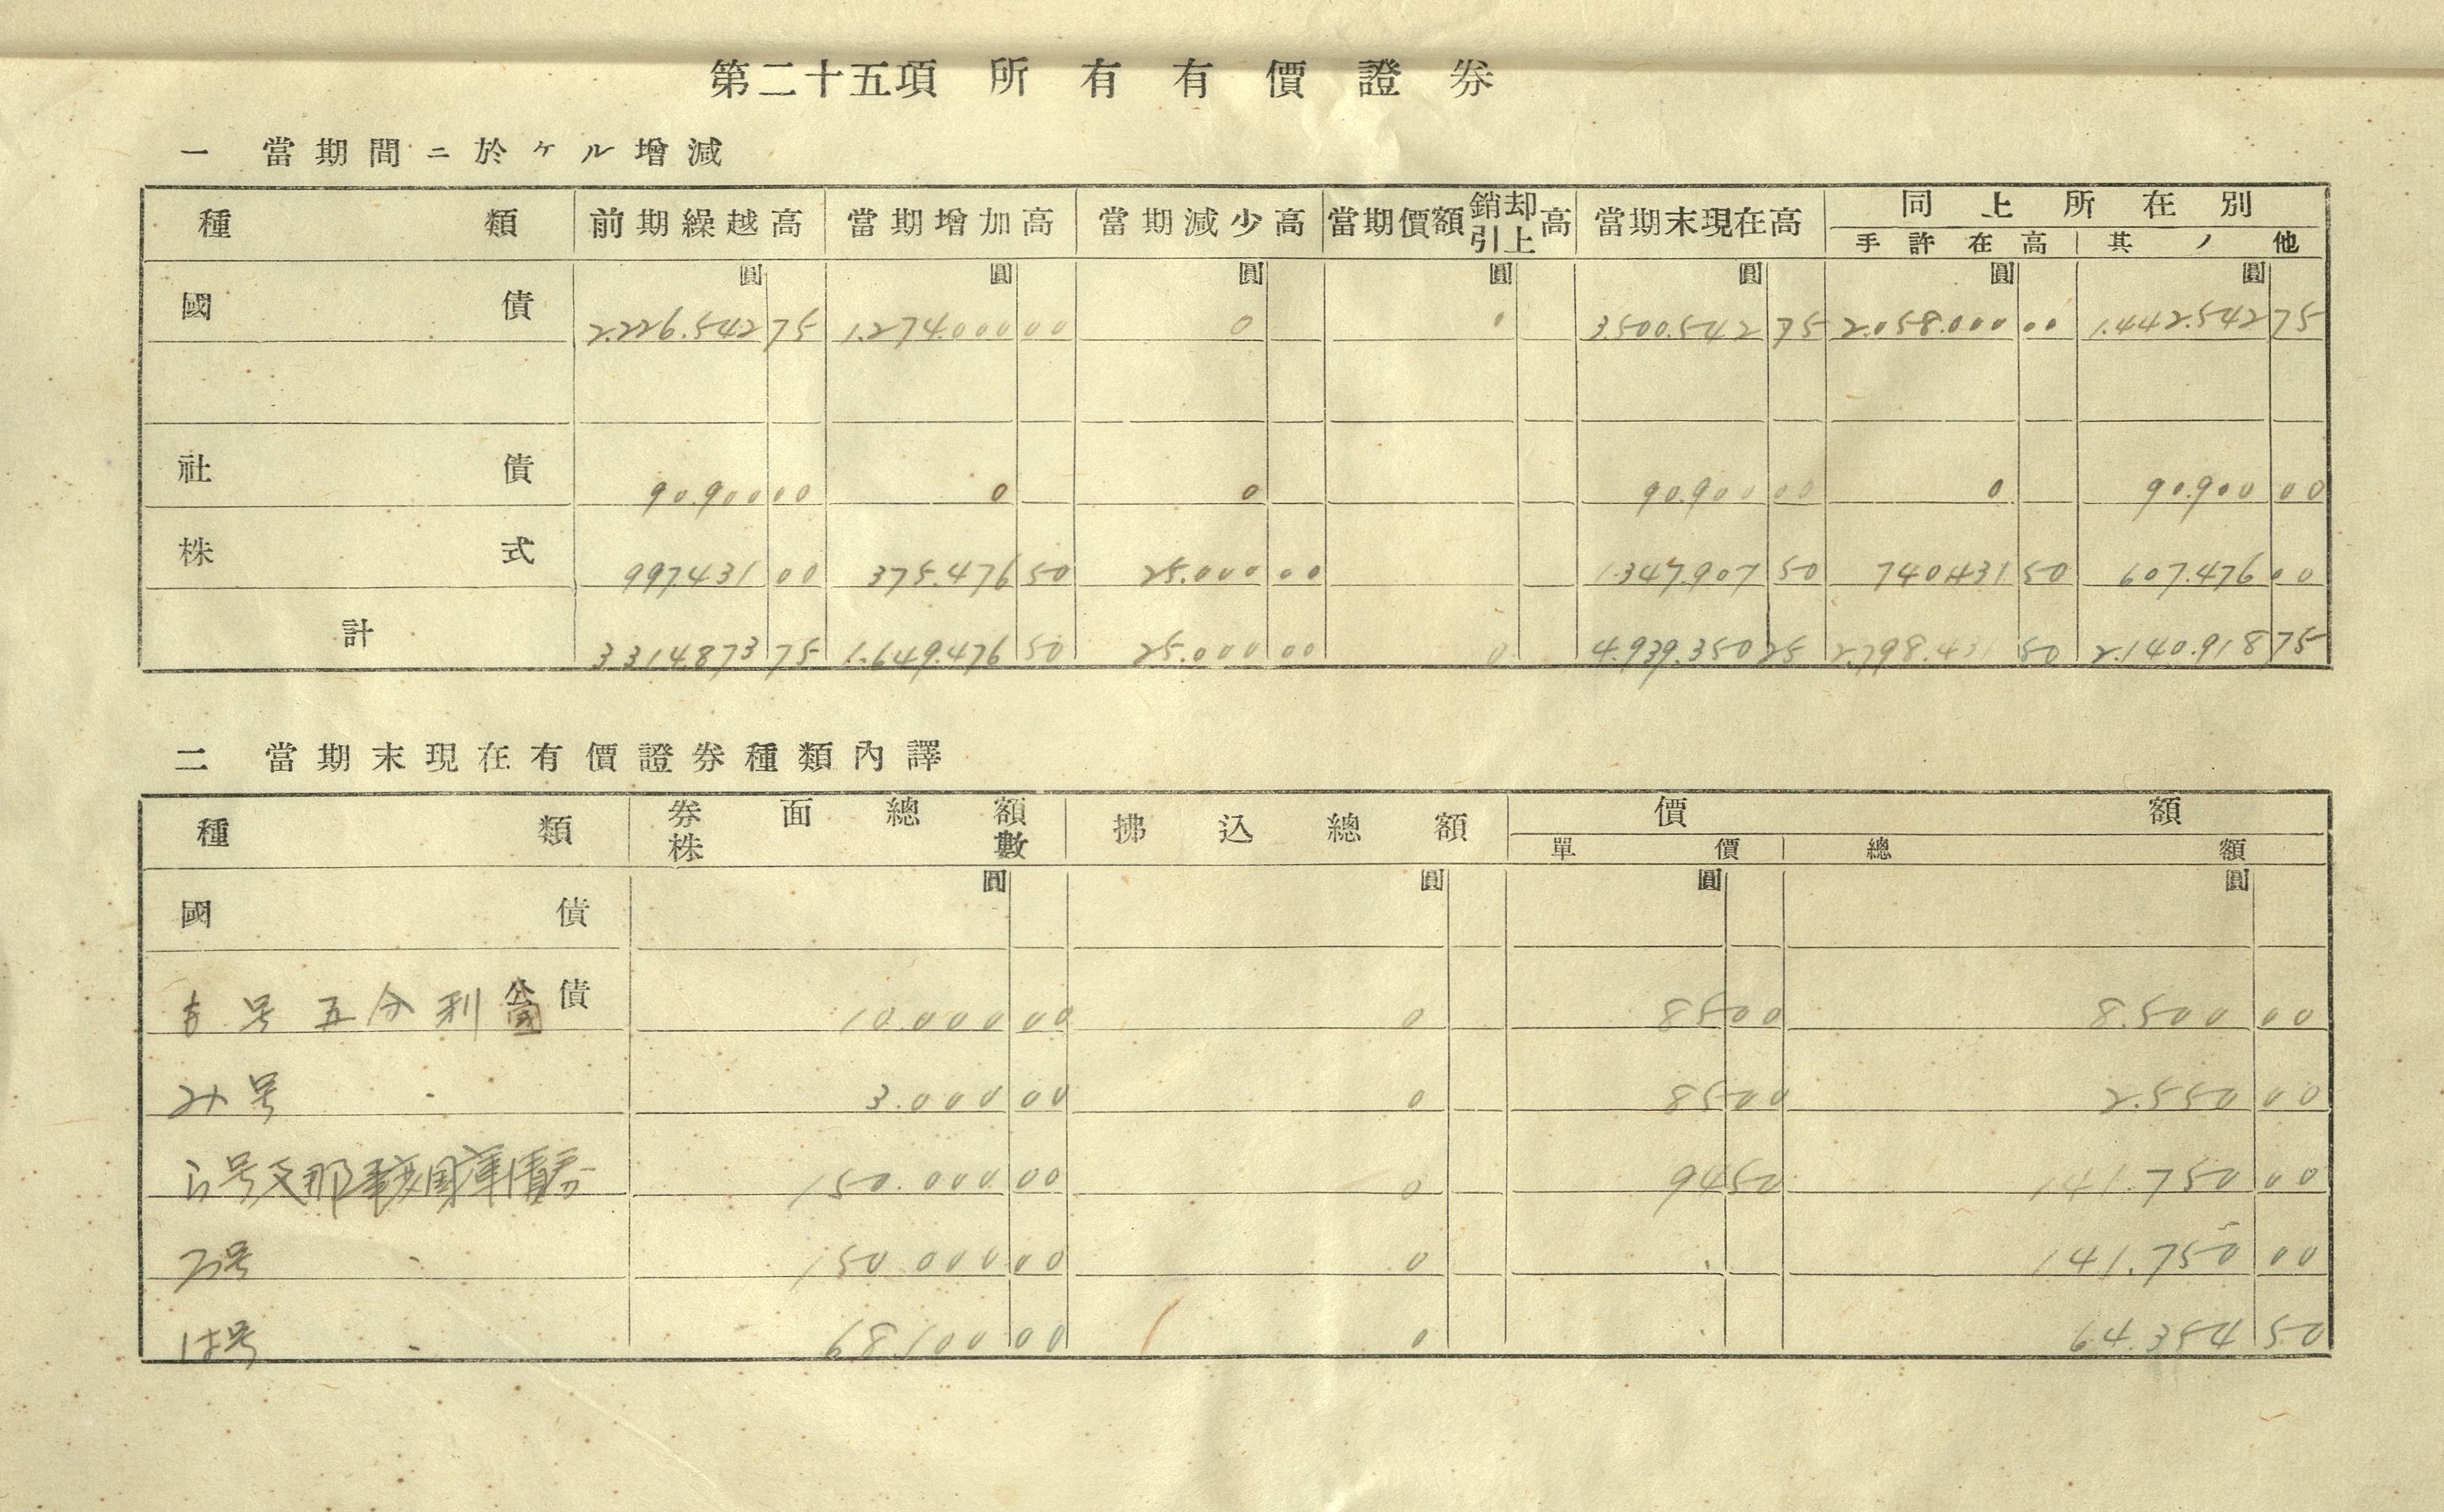 第二十五項 所有有價證券
一 當期間ニ於ケル增減
種類 前期繰越高 當期增加高 當期減少高 當期價額銷却引上高 當期末現在高 同上所在別
手許在高 其ノ他
圓 圓 圓 圓 圓 圓 圓
國債 2.226.542 75 1.274.000 00 0 0 3.500.542 75 2.058.000 00 1.442.542 75
社債 90.900 00 0 0 90.900 00 0 90.900 00
株式 997.431 00 375.476 50 25.000 00 1.347.907 50 740.431 50 607.476 00
計 3.314.873 75 1.649.476 50 25.000 00 0 4.939.350 25 2.798.431 50 2.140.918 75
二 當期末現在有價證券種類內譯
種類 券面總額 株數 拂込總額 價額
單價 總額
圓 圓 圓 圓
國債
號 五分利 公債 10.000 00 0 85 00 8.500 00
み号 〃 3.000 00 0 85 00 2.550 00
ろ号支那事変国庫債券 150.000 00 0 94 50 141.750 00
号 〃 150.000 00 0 〃 141.750 00
は号 〃 68.100 00 0 〃 64.354 50